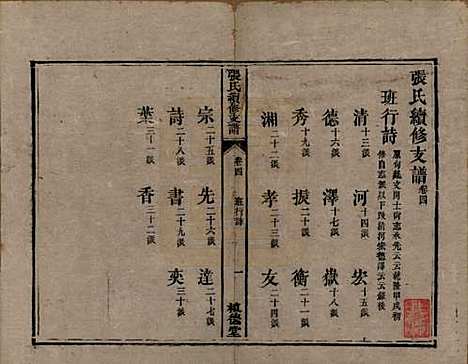 張氏續修支譜 卷四
班行詩
清 十三派
河 十四派
宏 十五派
德 十六派
澤 十七派
嶽 十八派
秀 十九派
振 二十派
衡 二十一派
湘 二十二派
孝 二十三派
友 二十四派
張氏續修支譜
卷四
班行詩
一
宗 二十五派
先 二十六派
達 二十七派
詩 二十八派
書 二十九派
奕 三十派
葉 三十一派
香 三十二派